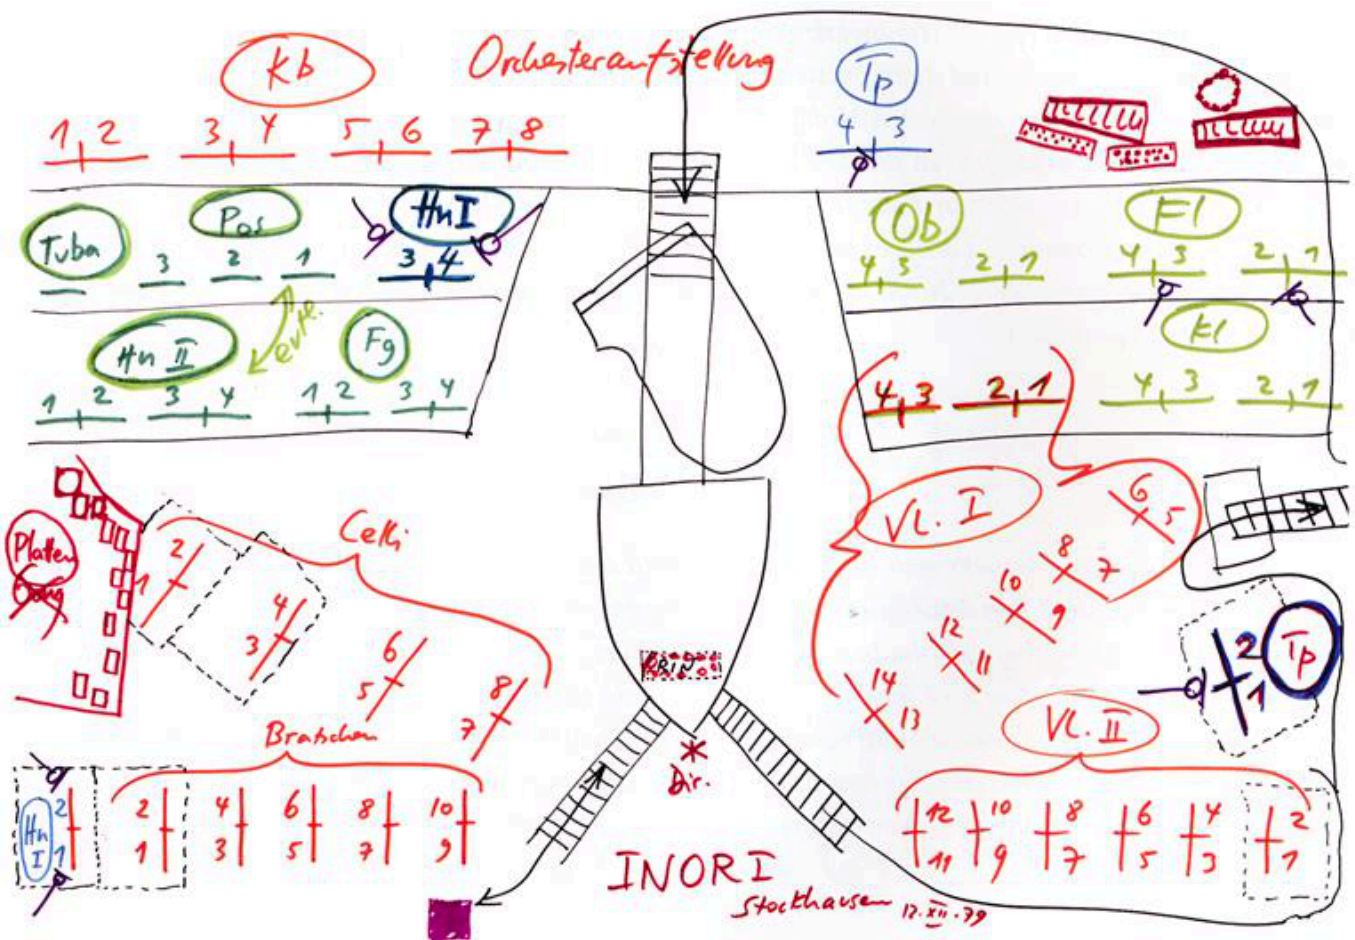 Kb
Orchesteraufstellung
Tp
1 2 3 4 5 6 7 8
4 3
Tuba
Pos
Hn I
Ob
Fl
3 2 1
3 4
4 3 2 1
4 3 2 1
Hn II
evtl.
Fg
Kl
1 2 3 4
1 2 3 4
4 3 2 1
4 3 2 1
Platten
Gong
Celli
1 2
3 4
5 6
7 8
Vl. I
6 5
8 7
10 9
12 11
14 13
Tp
2
1
RIN
Dir.
Bratschen
Vl. II
Hn
I
2 2 4 6 8 10
1 1 3 5 7 9
12 10 8 6 4 2
11 9 7 5 3 1
INORI
Stockhausen 12.XII.79